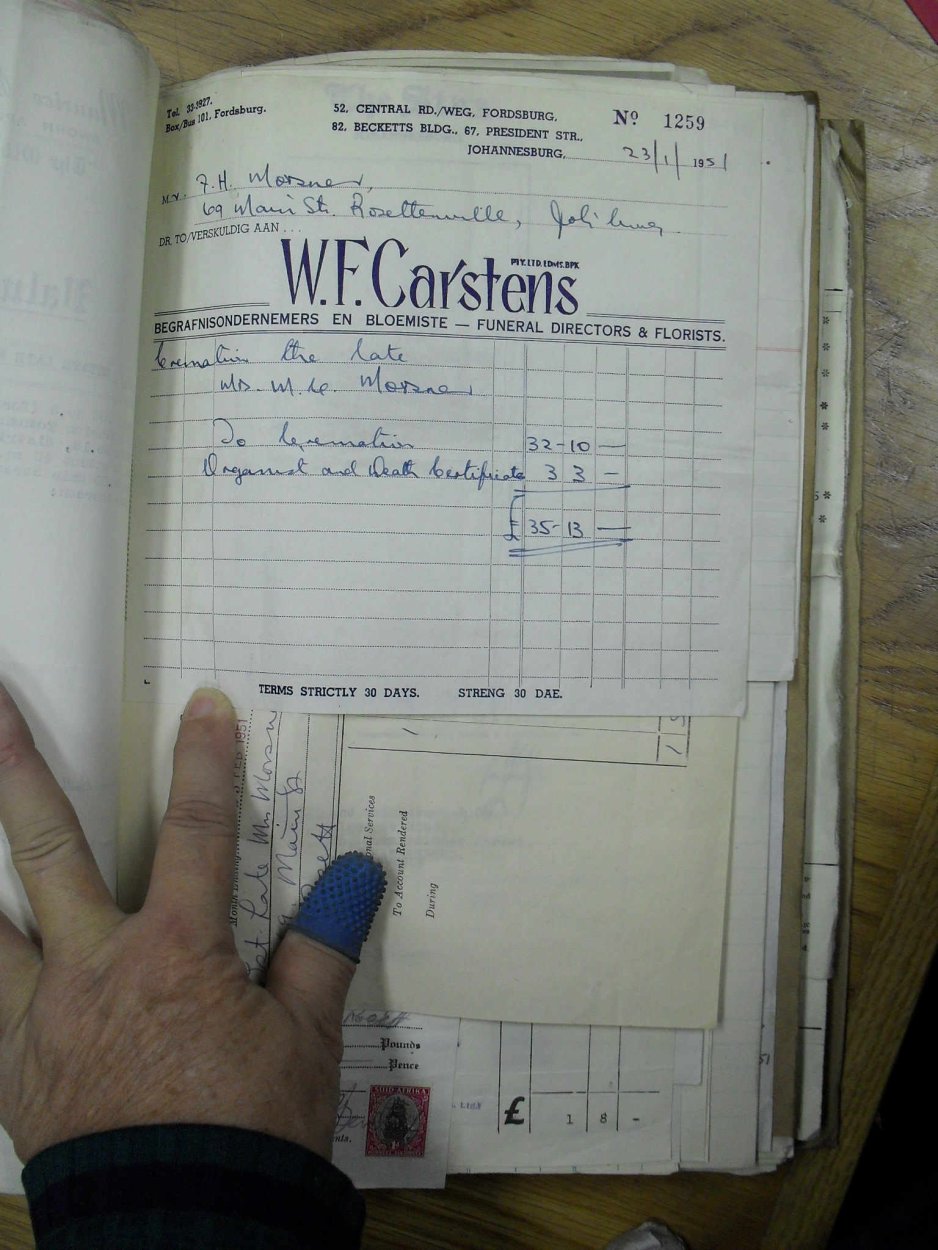 Tel. 33-1927.
Box/Bus 101, Fordsburg.
52, CENTRAL RD./WEG, FORDSBURG,
82, BECKETTS BLDG., 67, PRESIDENT STR.,
JOHANNESBURG,
Nº 1259
23/1/1951
Mr. F. H. Morsner,
69 Main St. Rosettenville, Joh'burg.
DR. TO/VERSKULDIG AAN . . .
W.F. Carstens
PTY. LTD. EDMS. BPK
BEGRAFNISONDERNEMERS EN BLOEMISTE — FUNERAL DIRECTORS & FLORISTS.
Cremation the late
Mrs. M. C. Morsner
To Cremation 32-10 —
Organist and Death Certificate 3 3 —
£ 35-13 —
TERMS STRICTLY 30 DAYS. STRENG 30 DAE.
FEB 1951
Est. Late Mrs Morsn
Main St
onal Services
To Account Rendered
During
Pounds
Pence
SUID-AFRIKA
£ 1 8 -